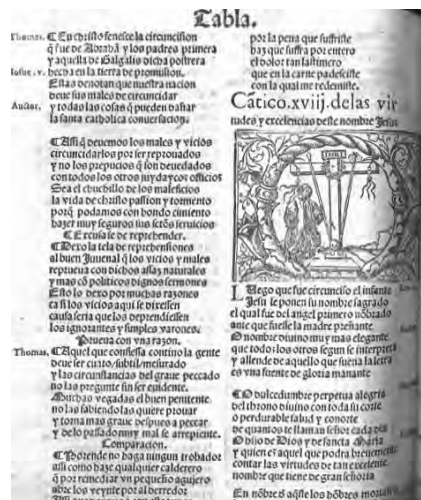 Tabla.
Thomas.
℄ En christo fenesce la circuncision
q̃ fue de Abrahã y los padres primera
y aquella de Galgalis dicha postrera
Iosue. v.
hecha en la tierra de promission.
Estas denotan que nuestra nacion
deue sus males de circuncidar
Auctor.
y todas las cosas q̃ pueden dañar
la santa catholica conuersacion.
℄ Assi q̃ deuemos los males y vicios
circuncidarlos por ser reprouados
y no los prepucios q̃ son deuedados
con todos los otros judaycos officios
Sea el cuchillo de los maleficios
la vida de christo passion y tormento
porq̃ podamos con hondo cimiento
hazer muy seguros sus sctõs seruicios
℄ Escusa se de reprehender.
℄ Dexo la tela de reprehensiones
al buen Juuenal q̃ los vicios y males
reprueua con dichos assaz naturales
y mas cõ politicos dignos sermones
Esto lo dexo por muchas razones
ca si los vicios aqui se dixessen
causa seria que los deprendiessen
los ignorantes y simples varones.
Prueua con vna razon.
Thomas.
℄ Aquel que confiessa contino la gente
deue ser cauto/subtil/mesurado
y las circunstancias del graue peccado
no las pregunte sin ser euidente.
Muchas vegadas el buen penitente
no las sabiendo las quiere prouar
y torna mas graue despues a peccar
y delo passado muy mal se arrepiente.
Comparacion.
℄ Por ende no haga ningun trobador
assi como haze qualquier calderero
q̃ por remediar vn pequeño agujero
abre los veynte por al derredor
por la pena que suffriste
haz que suffra por entero
el dolor tan lastimero
que en la carne padesciste
con la qual me redemiste.
Cãtico.xviij.delas vir
tudes y excelencias deste nombre Jesu
INRI
Luego que fue circunciso el infante
Jesu le ponen su nombre sagrado
el qual fue del angel primero nõbrado
ante que fuesse la madre preñante
O nombre diuino muy mas elegante
que todos los otros segun se interpreta
y allende de aquello que suena la letra
es vna fuente de gloria manante
℄ O dulcedumbre perpetua alegria
del throno diuino con toda su corte
o perdurable salud y conorte
de quantos te llaman señor cada dia
O hijo de Dios y de sancta Maria
y quien es aquel que podra breuemente
contar las virtudes de tan excelente
nombre que tiene de gran señoria
En nõbre d̃ aq̃ste los hõbres mortales